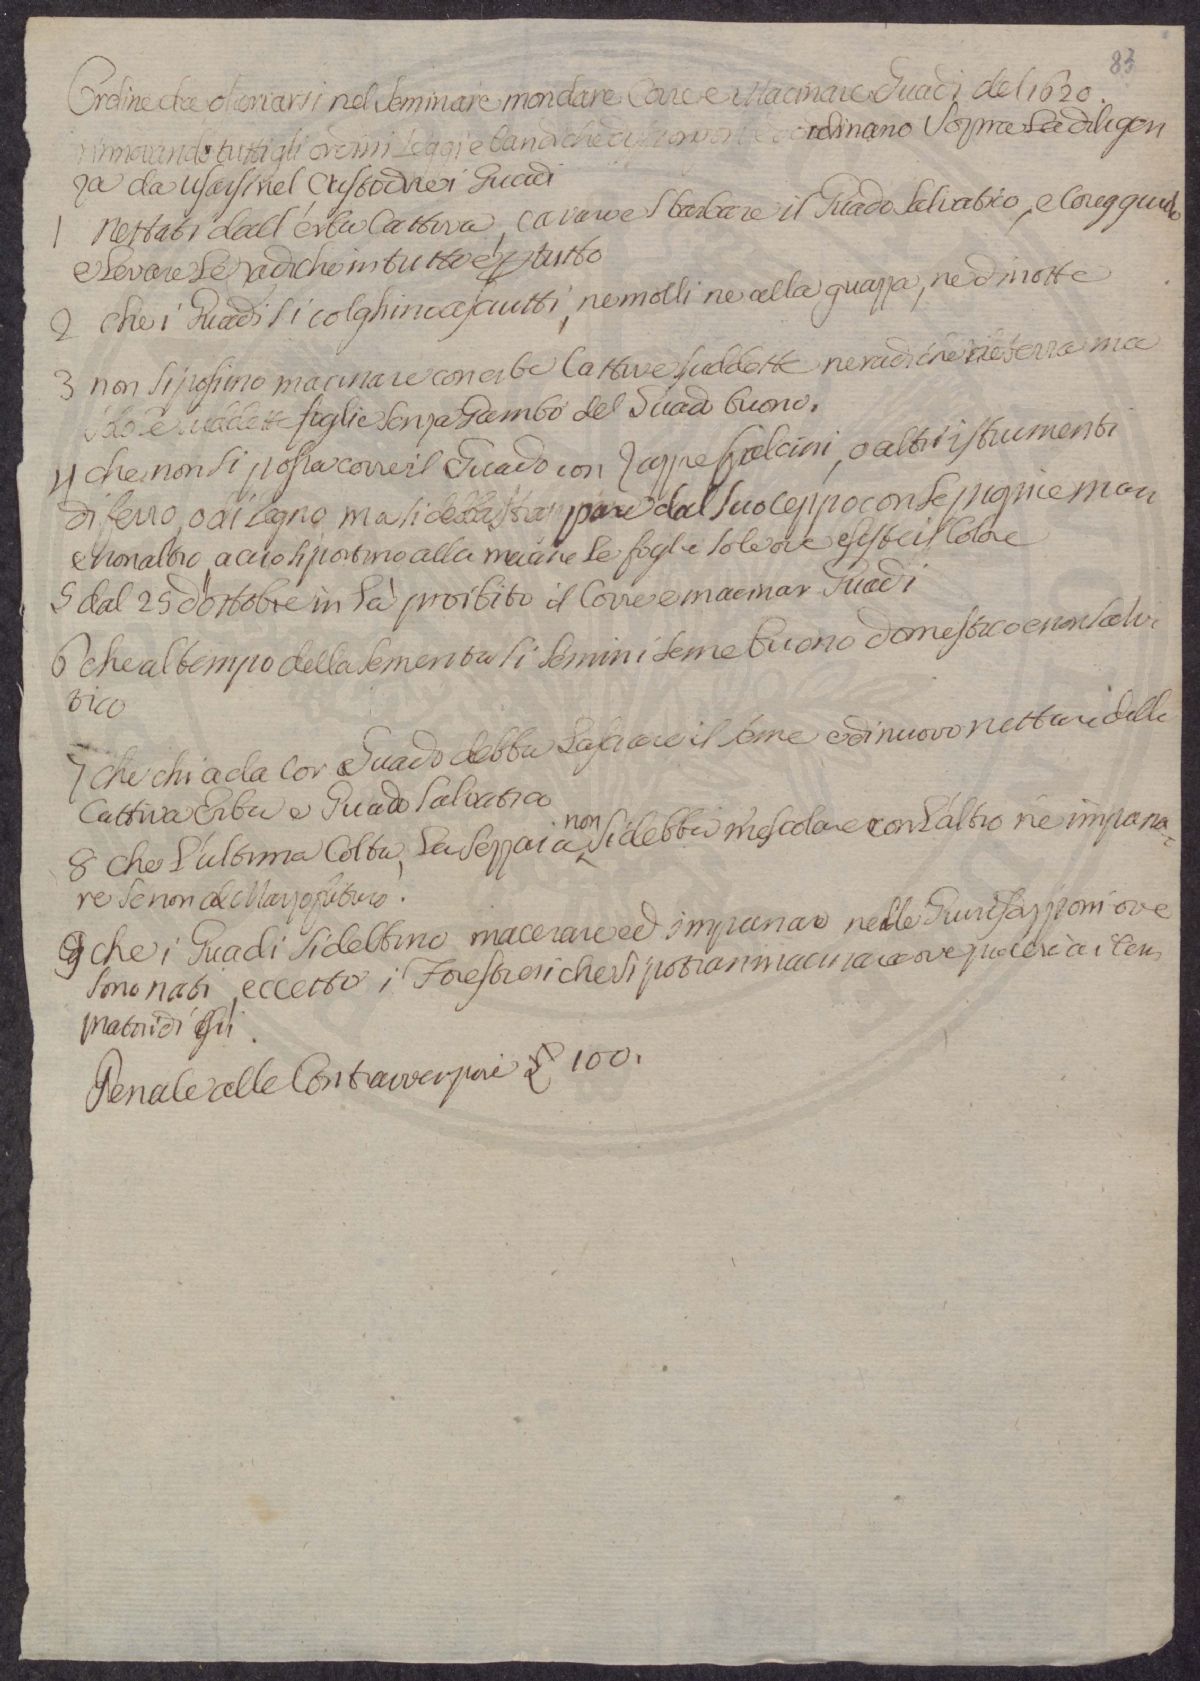 83
Ordine da osservarsi nel Seminare mondare Corre e Macinare Guadi del 1620.
rinnovando tutti gli ordini Leggi e bandi che ordinano Sopra La diligen
za da usarsi nel Custodire i Guadi
1 Nettati dall'erba Cattiva, cavare e Sbarbare il Guado Salvatico, e Coregguolo
e Levare Le radiche in tutto e p tutto
2 che i Guadi Si colghino asciutti, ne molli ne alla guazza, ne di notte
3 non Si possino macinare con erbe Cattive suddette ne radiche ne terra ma
solo le suddette foglie Senza Gambo del Guado buono.
4 che non Si possa corre il Guado con Zappe falcini, o altri istrumenti
di ferro, o di Legno ma si debba strappare dal Suo ceppo con Le pugnie man
e non altro, accio si portino alla macine Le foglie sole ove esiste il Colore
5 dal 25 d'ottobre in La proibito il Corre e macinar Guadi
6 che al tempo della Sementa Si Semini seme buono domestico e non Salva
tico
7 che chi a da Cor Guado debba Lasciare il seme e di nuovo nettare dalla
Cattiva Erba e Guado Salvatico
8 che L'ultima Colta, La Sezzaia non Si debba mescolare con L'altro ne impana
re Se non di Marzo futuro.
9 che i Guadi Si debbino macerare ed impanare nelle Giurisdizzioni ove
Sono nati, eccetto i Forestieri che Si potran macinare ove piacerà ai Com
pratori di essi.
Penale alle Contravenzioni £ 100.